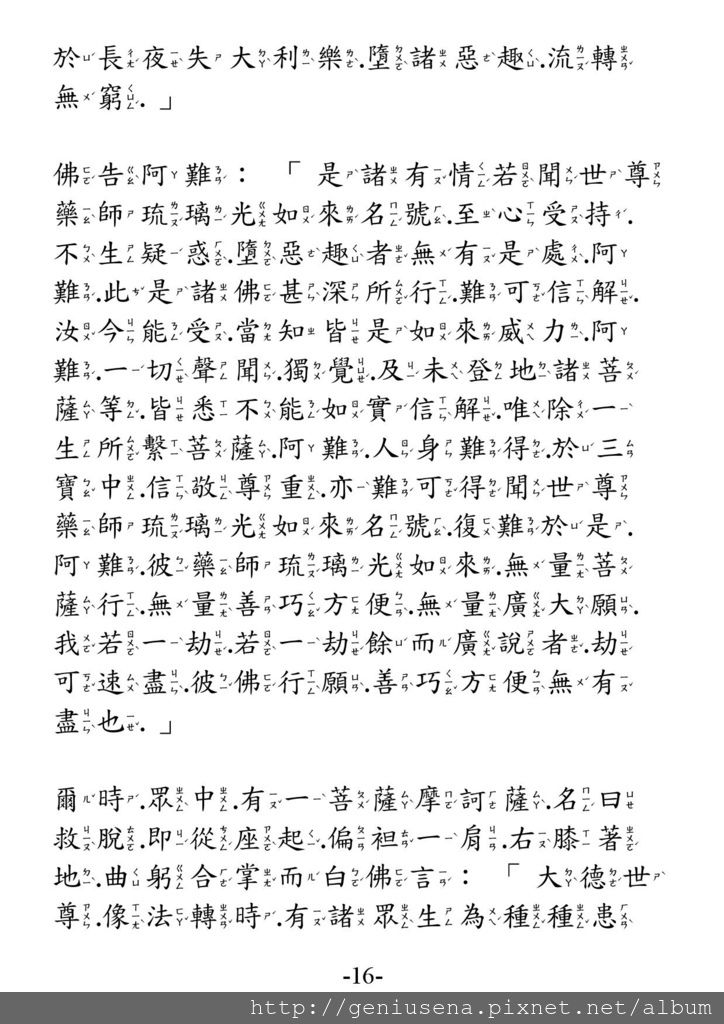 於長夜失大利樂.墮諸惡趣.流轉
無窮.」
佛告阿難：「是諸有情若聞世尊
藥師琉璃光如來名號.至心受持.
不生疑惑.墮惡趣者無有是處.阿
難.此是諸佛甚深所行.難可信解.
汝今能受.當知皆是如來威力.阿
難.一切聲聞.獨覺.及未登地諸菩
薩等.皆悉不能如實信解.唯除一
生所繫菩薩.阿難.人身難得.於三
寶中.信敬尊重.亦難可得聞世尊
藥師琉璃光如來名號.復難於是.
阿難.彼藥師琉璃光如來.無量菩
薩行.無量善巧方便.無量廣大願.
我若一劫.若一劫餘而廣說者.劫
可速盡.彼佛行願.善巧方便無有
盡也.」
爾時.眾中.有一菩薩摩訶薩.名曰
救脫.即從座起.偏袒一肩.右膝著
地.曲躬合掌而白佛言：「大德世
尊.像法轉時.有諸眾生為種種患
-16-
http://geniusena.pixnet.net/album